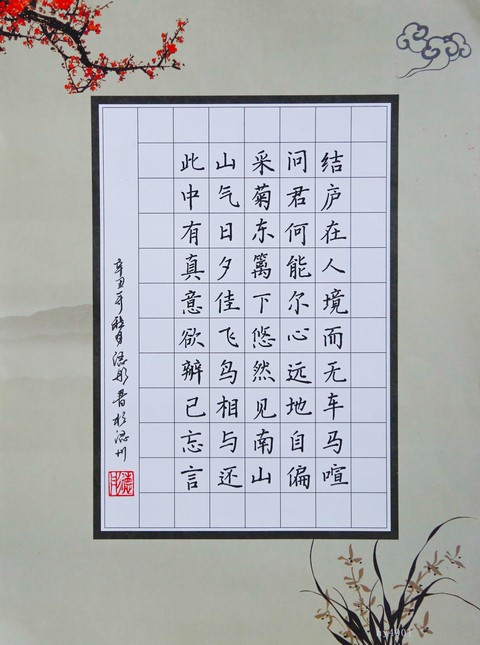 结庐在人境而无车马喧
问君何能尔心远地自偏
采菊东篱下悠然见南山
山气日夕佳飞鸟相与还
此中有真意欲辨已忘言
辛丑年